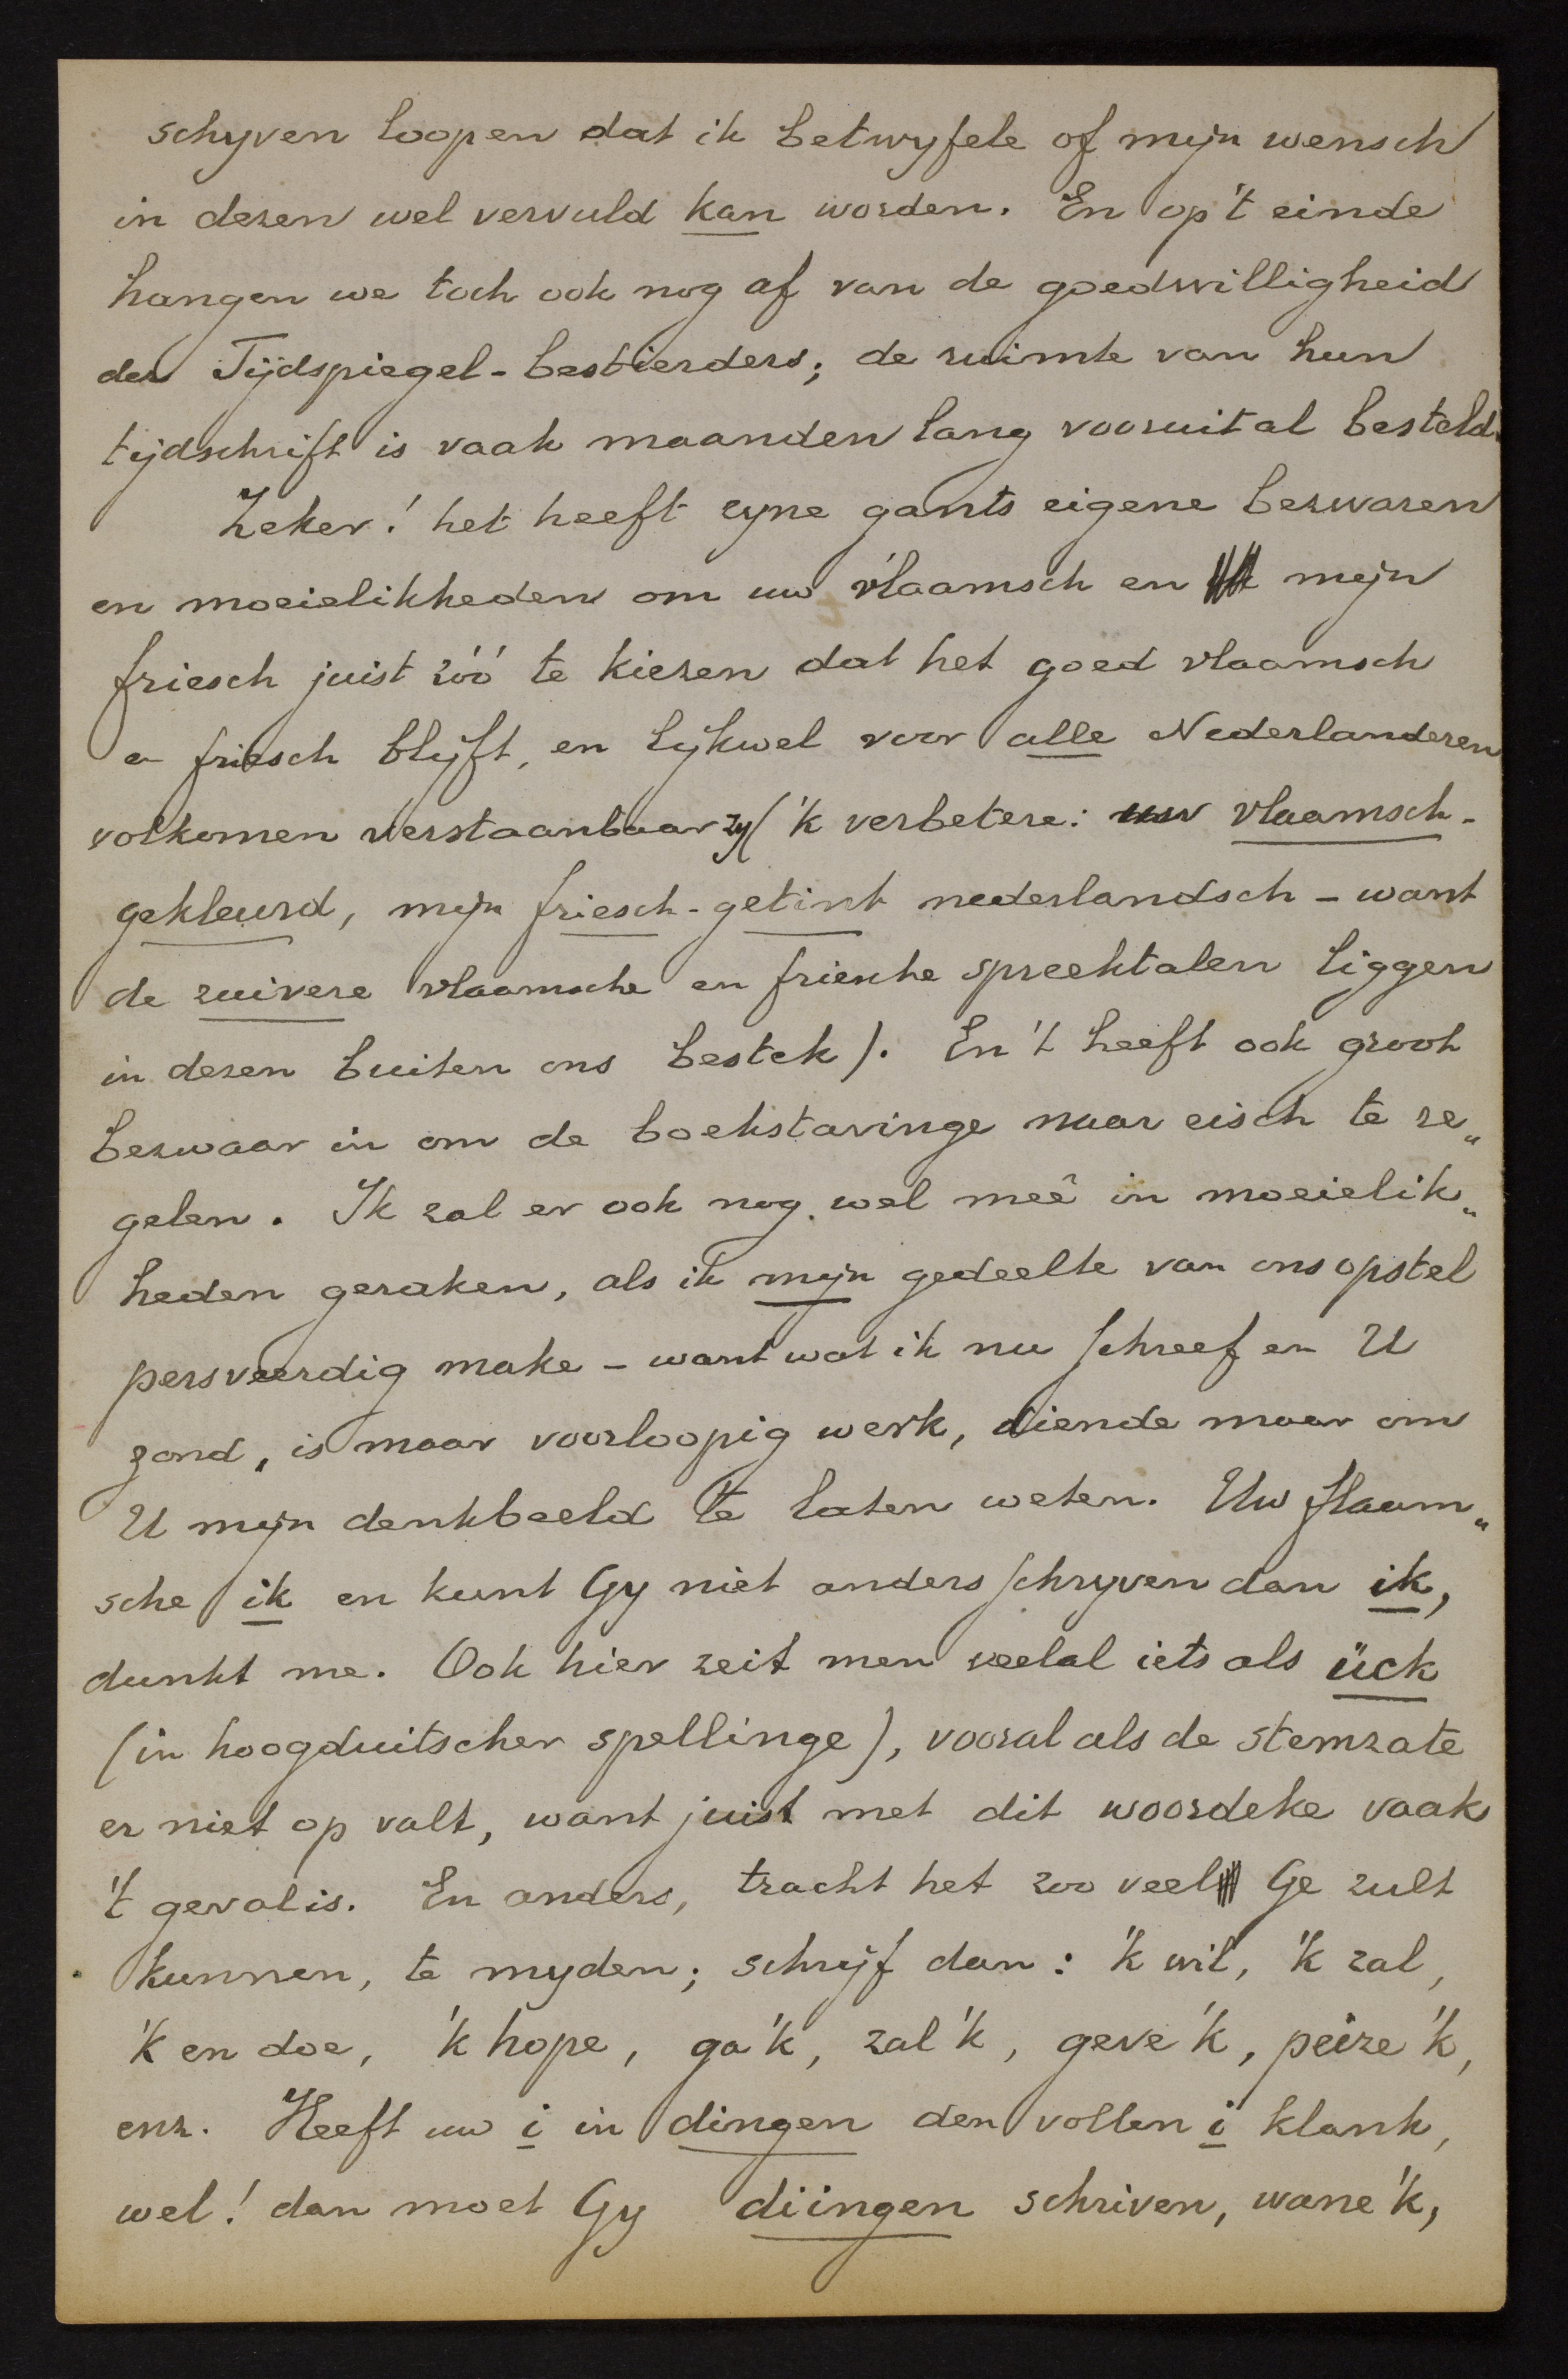 schyven loopen dat ik betwyfele of mijn wensch
in dezen wel vervuld kan worden. En op 't einde
hangen we toch ook nog af van de goedwilligheid
der Tijdspiegel-bestierders; de ruimte van hun
tijdschrift is vaak maanden lang vooruit al besteld.
Zeker! het heeft zyne gants eigene bezwaren
en moeielikheden om uw vlaamsch en mijn
friesch juist zóó te kiezen dat het goed vlaamsch
en friesch blyft, en lykwel voor alle Nederlanderen
volkomen verstaanbaar zy ('k verbetere: uw vlaamsch-
gekleurd, mijn friesch-getint nederlandsch - want
de zuivere vlaamsche en friesche spreektalen liggen
in dezen buiten ons bestek). En 't heeft ook groot
bezwaar in om de boekstavinge naar eisch te re„
gelen. Ik zal er ook nog wel meê in moeielik„
heden geraken, als ik mijn gedeelte van ons opstel
persveerdig make - want wat ik nu schreef en U
zond, is maar voorloopig werk, diende maar om
U mijn denkbeeld te laten weten. Uw flaam„
sche ik en kunt Gy niet anders schryven dan ik,
dunkt me. Ook hier zeit men veelal iets als ück
(in hoogduitscher spellinge), vooral als de stemzate
er niet op valt, want juist met dit woordeke vaak
't geval is. En anders, tracht het zoo veel Ge zult
kunnen, te myden; schrijf dan: 'k wil, 'k zal,
'k en doe, 'k hope, ga 'k, zal 'k, geve 'k, peize 'k,
enz. Heeft uw i in dingen den vollen i klank,
wel! dan moet Gy diingen schriven, wane 'k,